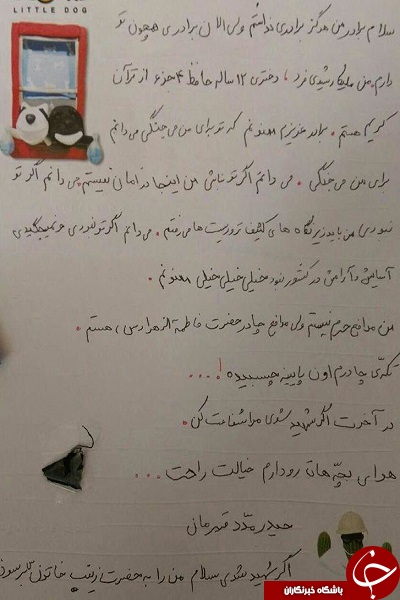 LITTLE DOG
سلام برادر من هرگز برادری نداشتم ولی الان برادری همچون تو
دارم من ملیکا رشیدی فرد، دختری ۱۲ ساله حافظ ۴ جزء از قرآن
کریم هستم. برادر عزیزم ممنونم که تو برای من می جنگی می دانم
برای من می جنگی. می دانم اگر تو نباشی من اینجا در امان نیستم می دانم اگر تو
نبودی من باید زیر نگاه های کثیف تروریست ها می رفتم. می دانم اگر تو نبودی و نمیجنگیدی
آسایش و آرامش در کشور نبود خیلی خیلی خیلی ممنونم.
من مدافع حرم نیستم ولی مدافع چادر حضرت فاطمة الزهرا (س) هستم.
تکه‌ی چادرم اون پایینه چسبیده!...
در آخرت اگر شهید شدی مرا شفاعت کن.
هوای بچه هات رو دارم خیالت راحت...
حیدر مدد قهرمان
اگر شهید شدی سلام من را به حضرت زینب خاتون برسون
باشگاه خبرنگاران